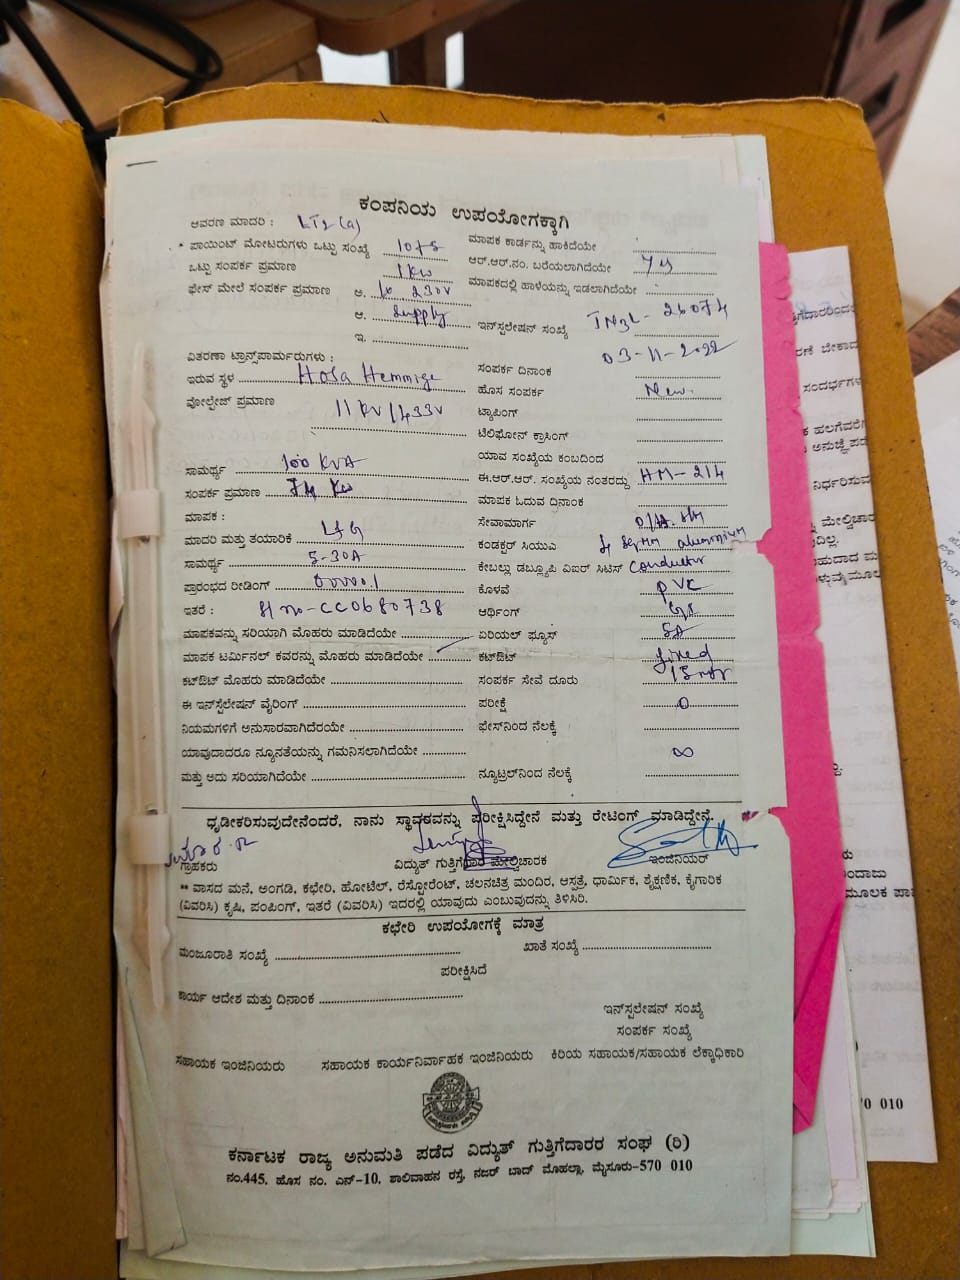 ಕಂಪನಿಯ ಉಪಯೋಗಕ್ಕಾಗಿ
ಆವರಣ ಮಾದರಿ : LT2(a)
* ಪಾಯಿಂಟ್ ಮೋಟರುಗಳು ಒಟ್ಟು ಸಂಖ್ಯೆ
ಒಟ್ಟು ಸಂಪರ್ಕ ಪ್ರಮಾಣ 1 kw
ಫೇಸ್ ಮೇಲೆ ಸಂಪರ್ಕ ಪ್ರಮಾಣ ಅ. 230V
ಆ. Supply
ಇ.
ವಿತರಣಾ ಟ್ರಾನ್ಸ್‌ಪಾರ್ಮರುಗಳು :
ಇರುವ ಸ್ಥಳ Hosa Hemmige
ವೋಲ್ಟೇಜ್ ಪ್ರಮಾಣ 11 KV/433V
ಸಾಮರ್ಥ್ಯ 100 KVA
ಸಂಪರ್ಕ ಪ್ರಮಾಣ 74 Kw
ಮಾಪಕ :
ಮಾದರಿ ಮತ್ತು ತಯಾರಿಕೆ L&G
ಸಾಮರ್ಥ್ಯ 5-30A
ಪ್ರಾರಂಭದ ರೀಡಿಂಗ್ 0000.1
ಇತರೆ : Sl no-CC0680738
ಮಾಪಕವನ್ನು ಸರಿಯಾಗಿ ಮೊಹರು ಮಾಡಿದೆಯೇ
ಮಾಪಕ ಟರ್ಮಿನಲ್ ಕವರನ್ನು ಮೊಹರು ಮಾಡಿದೆಯೇ
ಕಟ್‌ಔಟ್ ಮೊಹರು ಮಾಡಿದೆಯೇ
ಈ ಇನ್‌ಸ್ಟೆಲೇಷನ್ ವೈರಿಂಗ್
ನಿಯಮಗಳಿಗೆ ಅನುಸಾರವಾಗಿದೆರಯೇ
ಯಾವುದಾದರೂ ನ್ಯೂನತೆಯನ್ನು ಗಮನಿಸಲಾಗಿದೆಯೇ
ಮತ್ತು ಅದು ಸರಿಯಾಗಿದೆಯೇ
ಮಾಪಕ ಕಾರ್ಡನ್ನು ಹಾಕಿದೆಯೇ
ಆರ್.ಆರ್.ನಂ. ಬರೆಯಲಾಗಿದೆಯೇ Yes
ಮಾಪಕದಲ್ಲಿ ಹಾಳೆಯನ್ನು ಇಡಲಾಗಿದೆಯೇ
ಇನ್‌ಸ್ಪಲೇಷನ್ ಸಂಖ್ಯೆ TN3L-26074
ಸಂಪರ್ಕ ದಿನಾಂಕ 03-11-2022
ಹೊಸ ಸಂಪರ್ಕ New.
ಟ್ಯಾಪಿಂಗ್
ಟೆಲಿಫೋನ್ ಕ್ರಾಸಿಂಗ್
ಯಾವ ಸಂಖ್ಯೆಯ ಕಂಬದಿಂದ
ಈ.ಆರ್.ಆರ್. ಸಂಖ್ಯೆಯ ನಂತರದ್ದು HM-214
ಮಾಪಕ ಓದುವ ದಿನಾಂಕ
ಸೇವಾಮಾರ್ಗ
ಕಂಡಕ್ಟರ್ ಸಿಯುಎ 4 SqMM aluminium
ಕೇಬಲ್ಲು ಡಬ್ಲ್ಯೂಪಿ ವಿಐರ್ ಸಿಟಿಸ್ Conductor
ಕೊಳವೆ PVC
ಆರ್ಥಿಂಗ್ GI
ಏರಿಯಲ್ ಫ್ಯೂಸ್ 5A
ಕಟ್‌ಔಟ್ fixed
ಸಂಪರ್ಕ ಸೇವೆ ದೂರು 15 mtr
ಪರೀಕ್ಷೆ 0
ಫೇಸ್‌ನಿಂದ ನೆಲಕ್ಕೆ
∞
ನ್ಯೂಟ್ರಲ್‌ನಿಂದ ನೆಲಕ್ಕೆ
ಧೃಡೀಕರಿಸುವುದೇನೆಂದರೆ, ನಾನು ಸ್ಥಾವರವನ್ನು ಪರೀಕ್ಷಿಸಿದ್ದೇನೆ ಮತ್ತು ರೇಟಿಂಗ್ ಮಾಡಿದ್ದೇನೆ.
ಗ್ರಾಹಕರು ವಿದ್ಯುತ್ ಗುತ್ತಿಗೆದಾರ ಮೇಲ್ವಿಚಾರಕ ಇಂಜಿನಿಯರ್
** ವಾಸದ ಮನೆ, ಅಂಗಡಿ, ಕಛೇರಿ, ಹೋಟೆಲ್, ರೆಸ್ಟೋರೆಂಟ್, ಚಲನಚಿತ್ರ ಮಂದಿರ, ಆಸ್ಪತ್ರೆ, ಧಾರ್ಮಿಕ, ಶೈಕ್ಷಣಿಕ, ಕೈಗಾರಿಕ
(ವಿವರಿಸಿ) ಕೃಷಿ, ಪಂಪಿಂಗ್, ಇತರೆ (ವಿವರಿಸಿ) ಇದರಲ್ಲಿ ಯಾವುದು ಎಂಬುವುದನ್ನು ತಿಳಿಸಿರಿ.
ಕಛೇರಿ ಉಪಯೋಗಕ್ಕೆ ಮಾತ್ರ
ಮಂಜೂರಾತಿ ಸಂಖ್ಯೆ ಖಾತೆ ಸಂಖ್ಯೆ
ಪರೀಕ್ಷಿಸಿದೆ
ಕಾರ್ಯ ಆದೇಶ ಮತ್ತು ದಿನಾಂಕ
ಇನ್‌ಸ್ಪಲೇಷನ್ ಸಂಖ್ಯೆ
ಸಂಪರ್ಕ ಸಂಖ್ಯೆ
ಸಹಾಯಕ ಇಂಜಿನಿಯರು ಸಹಾಯಕ ಕಾರ್ಯನಿರ್ವಾಹಕ ಇಂಜಿನಿಯರು ಕಿರಿಯ ಸಹಾಯಕ/ಸಹಾಯಕ ಲೆಕ್ಕಾಧಿಕಾರಿ
ಕರ್ನಾಟಕ ರಾಜ್ಯ ಅನುಮತಿ ಪಡೆದ ವಿದ್ಯುತ್ ಗುತ್ತಿಗೆದಾರರ ಸಂಘ (ರಿ)
ನಂ.445, ಹೊಸ ನಂ. ಎನ್-10, ಶಾಲಿವಾಹನ ರಸ್ತೆ, ನಜರ್ ಬಾದ್ ಮೊಹಲ್ಲಾ, ಮೈಸೂರು-570 010